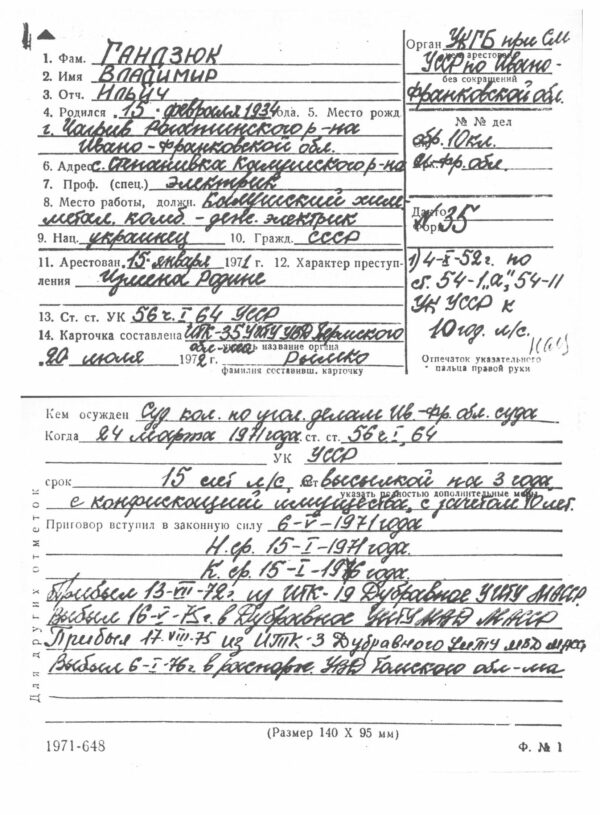 1. Фам. ГАНДЗЮК
2. Имя ВЛАДИМИР
3. Отч. ИЛЬИЧ
4. Родился „15" февраля 1934 года. 5. Место рожд.
Рогатинского р-на
Ивано-Франковской обл.
6. Адрес с. Степанивка Калушского р-на
7. Проф. (спец.) электрик
8. Место работы, должн. Калушский хим.-
метал. комб. - деж. электрик
9. Нац. украинец 10. Гражд. СССР
11. Арестован 15 января 1971 г. 12. Характер преступ-
ления Измена Родине
13. Ст. ст. УК 56 ч. I, 64 УССР
14. Карточка составлена ИТК-35 УИТУ УВД Пермского
обл-ма указать название органа
„20" июля 1972 г. Рылко
фамилия составивш. карточку
Орган УКГБ при СМ
чей арестован
УССР по Ивано-
без сокращений
Франковской обл.
№ № дел
обр. 10 кл.
Ив. Фр. обл.
№ 35
1) 4-X-52г. по
ст. 54-1 „а", 54-11
УК УССР к
10 год. л/с.
Отпечаток указательного
пальца правой руки
Кем осужден Суд. кол. по угол. делам Ив-Фр. обл. суда
Когда 24 марта 1971 года ст. ст. 56 ч. I, 64
УК УССР
срок 15 лет л/с, высылкой на 3 года
указать полностью дополнительные меры
с конфискацией имущества, с зачетом
Приговор вступил в законную силу 6-V-1971 года
Н. ср. 15-I-1971 года.
К. ср. 15-I-1976 года.
Прибыл 13-VII-72г. из ИТК-19 Дубравное УИТУ МАССР.
Выбыл 16-V-75г. в Дубравное УИТУ МВД МАССР
Прибыл 17.VIII-75 из ИТК-3 Дубравного УИТУ МВД МАССР
Выбыл 6-I-76г. в распоряж. УВД Томского обл-ма
Для других отметок
(Размер 140 X 95 мм)
1971-648 Ф. № 1